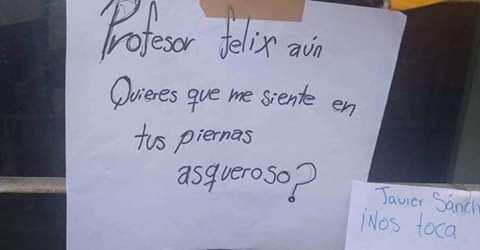 Profesor felix aún
Quieres que me siente en
tus piernas
asqueroso?
Javier Sánch
¡Nos toca